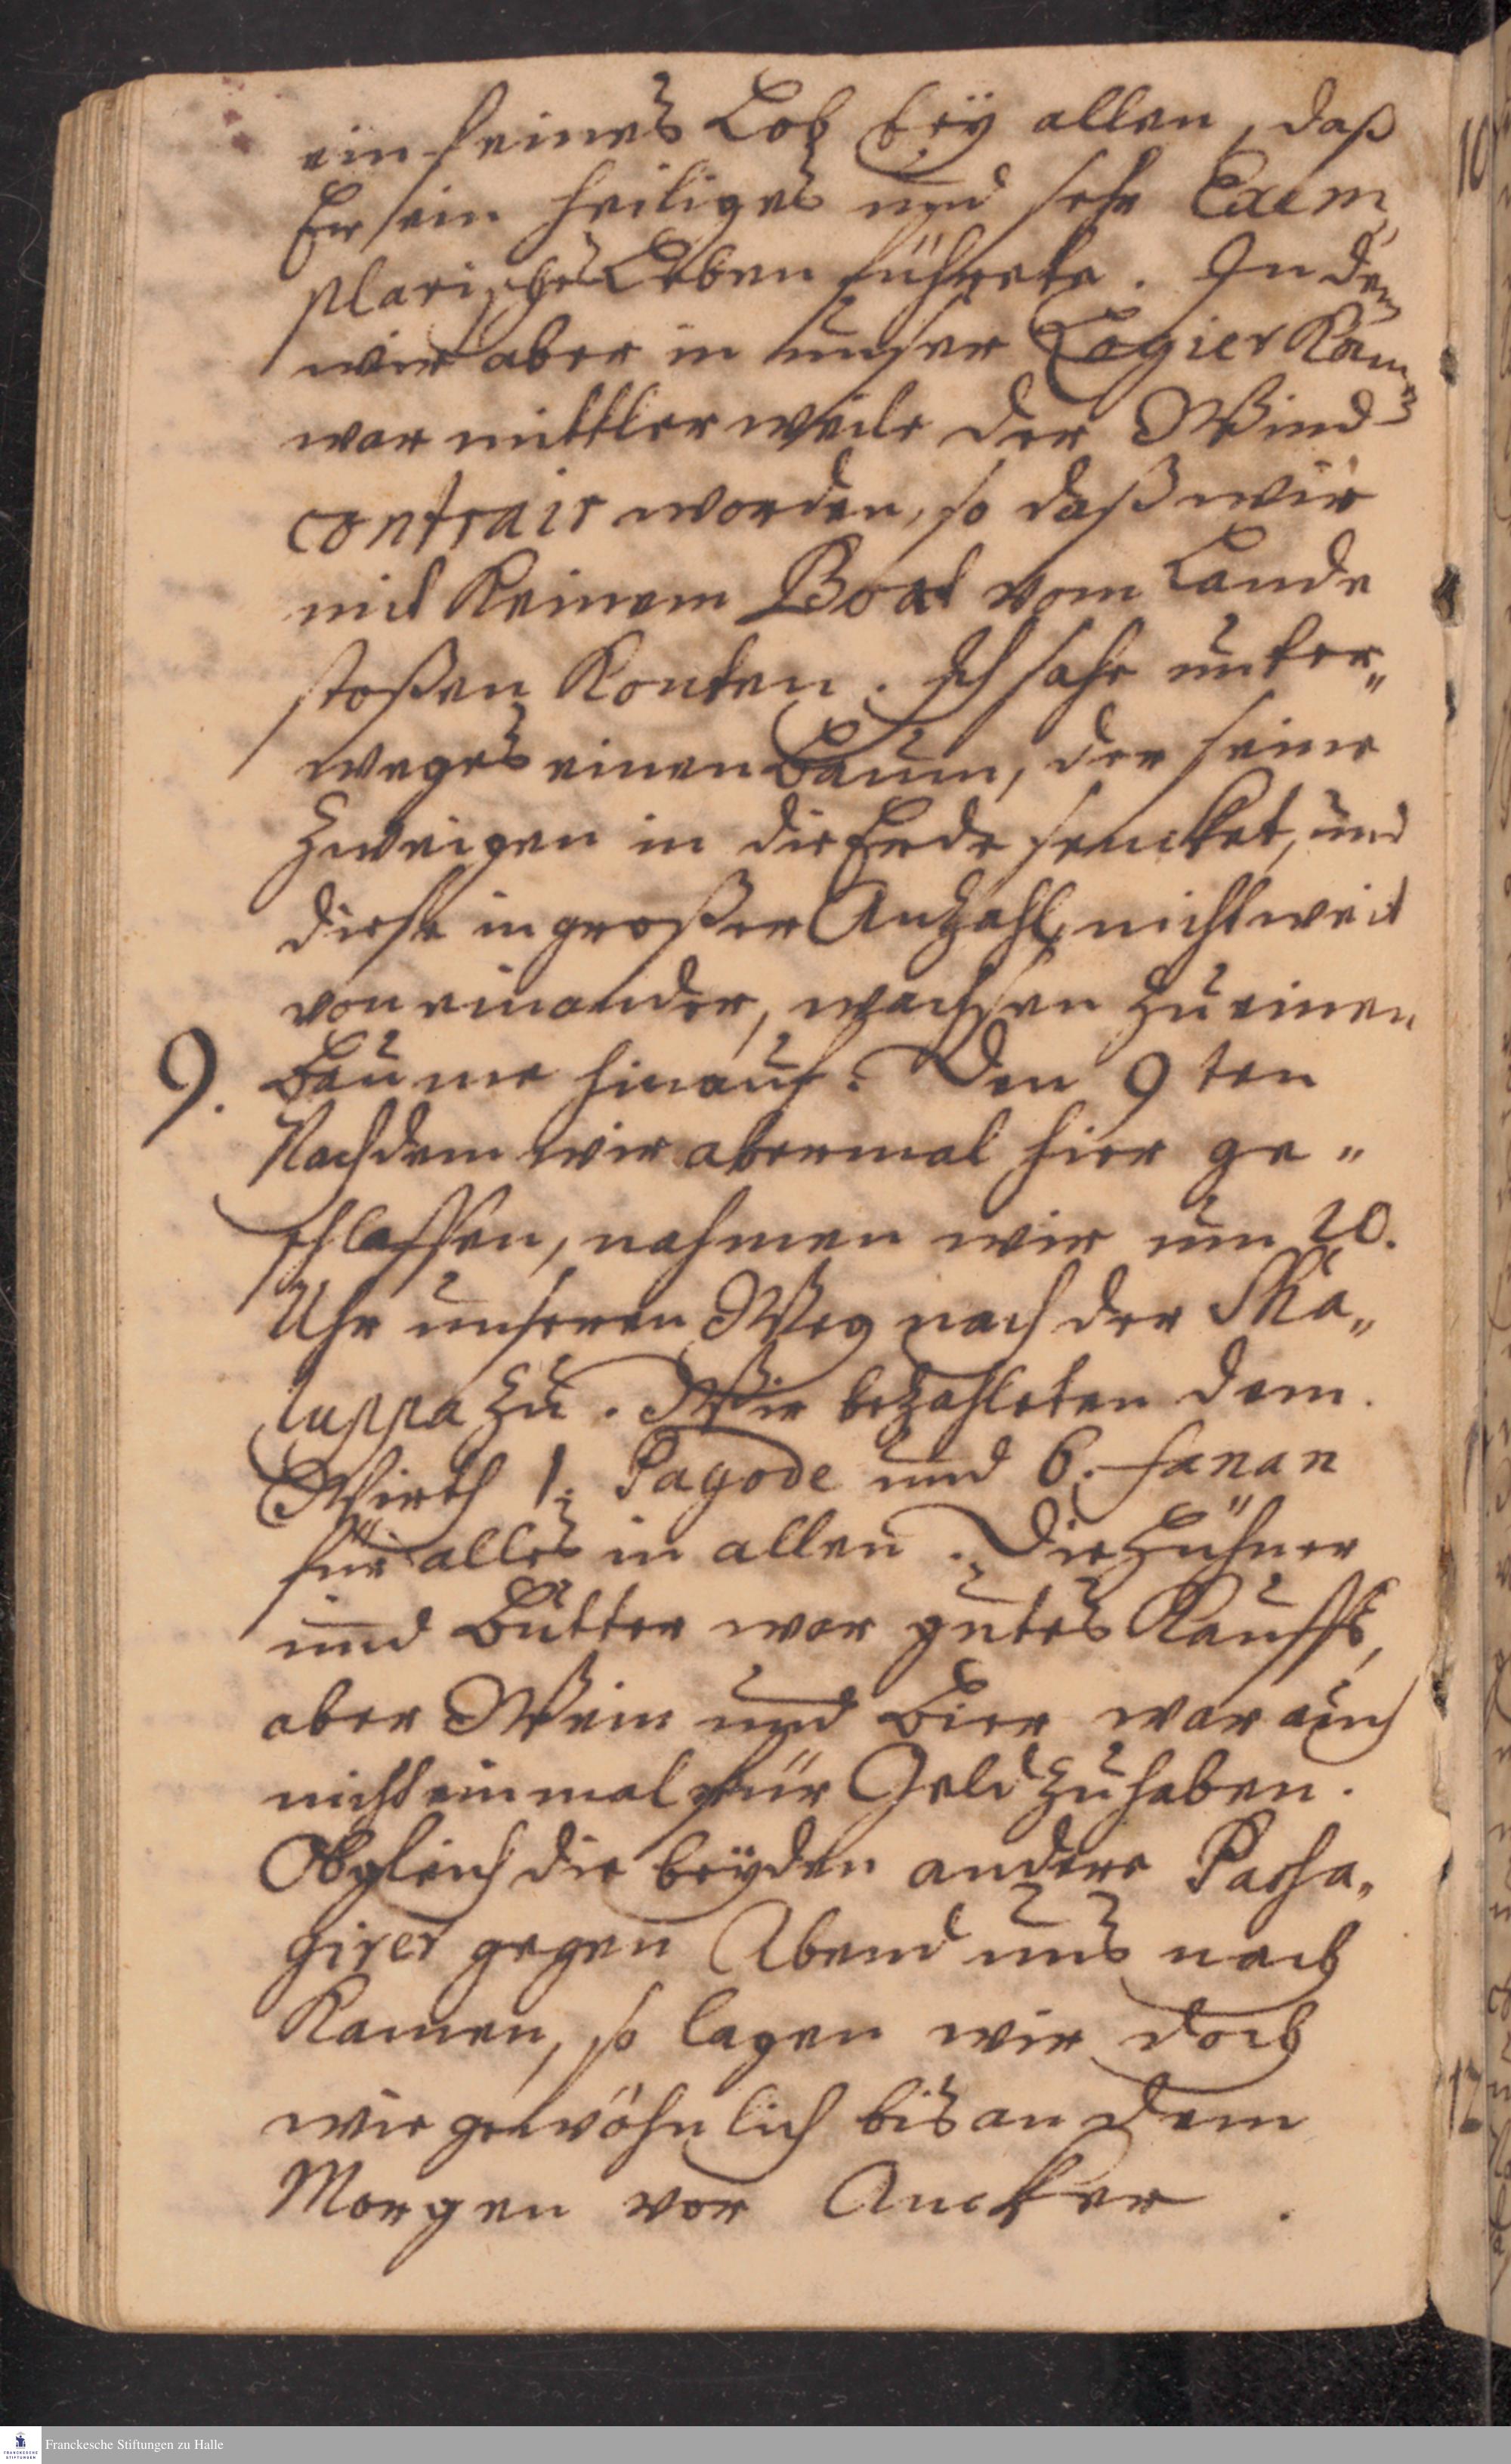 ein feines Lob bey allen, daß
Er ein heiliges und sehr Exem„
plarisches Leben führete. In dem
wir aber in unser Logier kam̅
war mittler weile der Wind
contrair worden, so daß wir
mit keinem Boat vom Lande
stoßen konten. Ich sahe unter„
weges einen Baum, der seine
Zweigen in die Erde sencket, und
diese in großer Anzahl, nicht weit
von einander, wachsen zu einen
9. Baume hinauf. Den 9 ten
Nachdem wir abermal hier ge„
schlaffen, nahmen wir um 10.
Uhr unseren Weg nach der Cha„
luppa zu. Wir bezahleten dem
Wirth 1. Pagode und 6. fanan
für alles in allen. Die Hühner
und Butter war gutes Kauffs,
aber Wein und Bier war auch
nicht einmal für Geld zu haben.
Obgleich die beyden andere Passa„
girer gegen Abend uns nach
kamen, so lagen wir doch
wie gewöhnlich bis an dem
Morgen vor Ancker.
Franckesche Stiftungen zu Halle